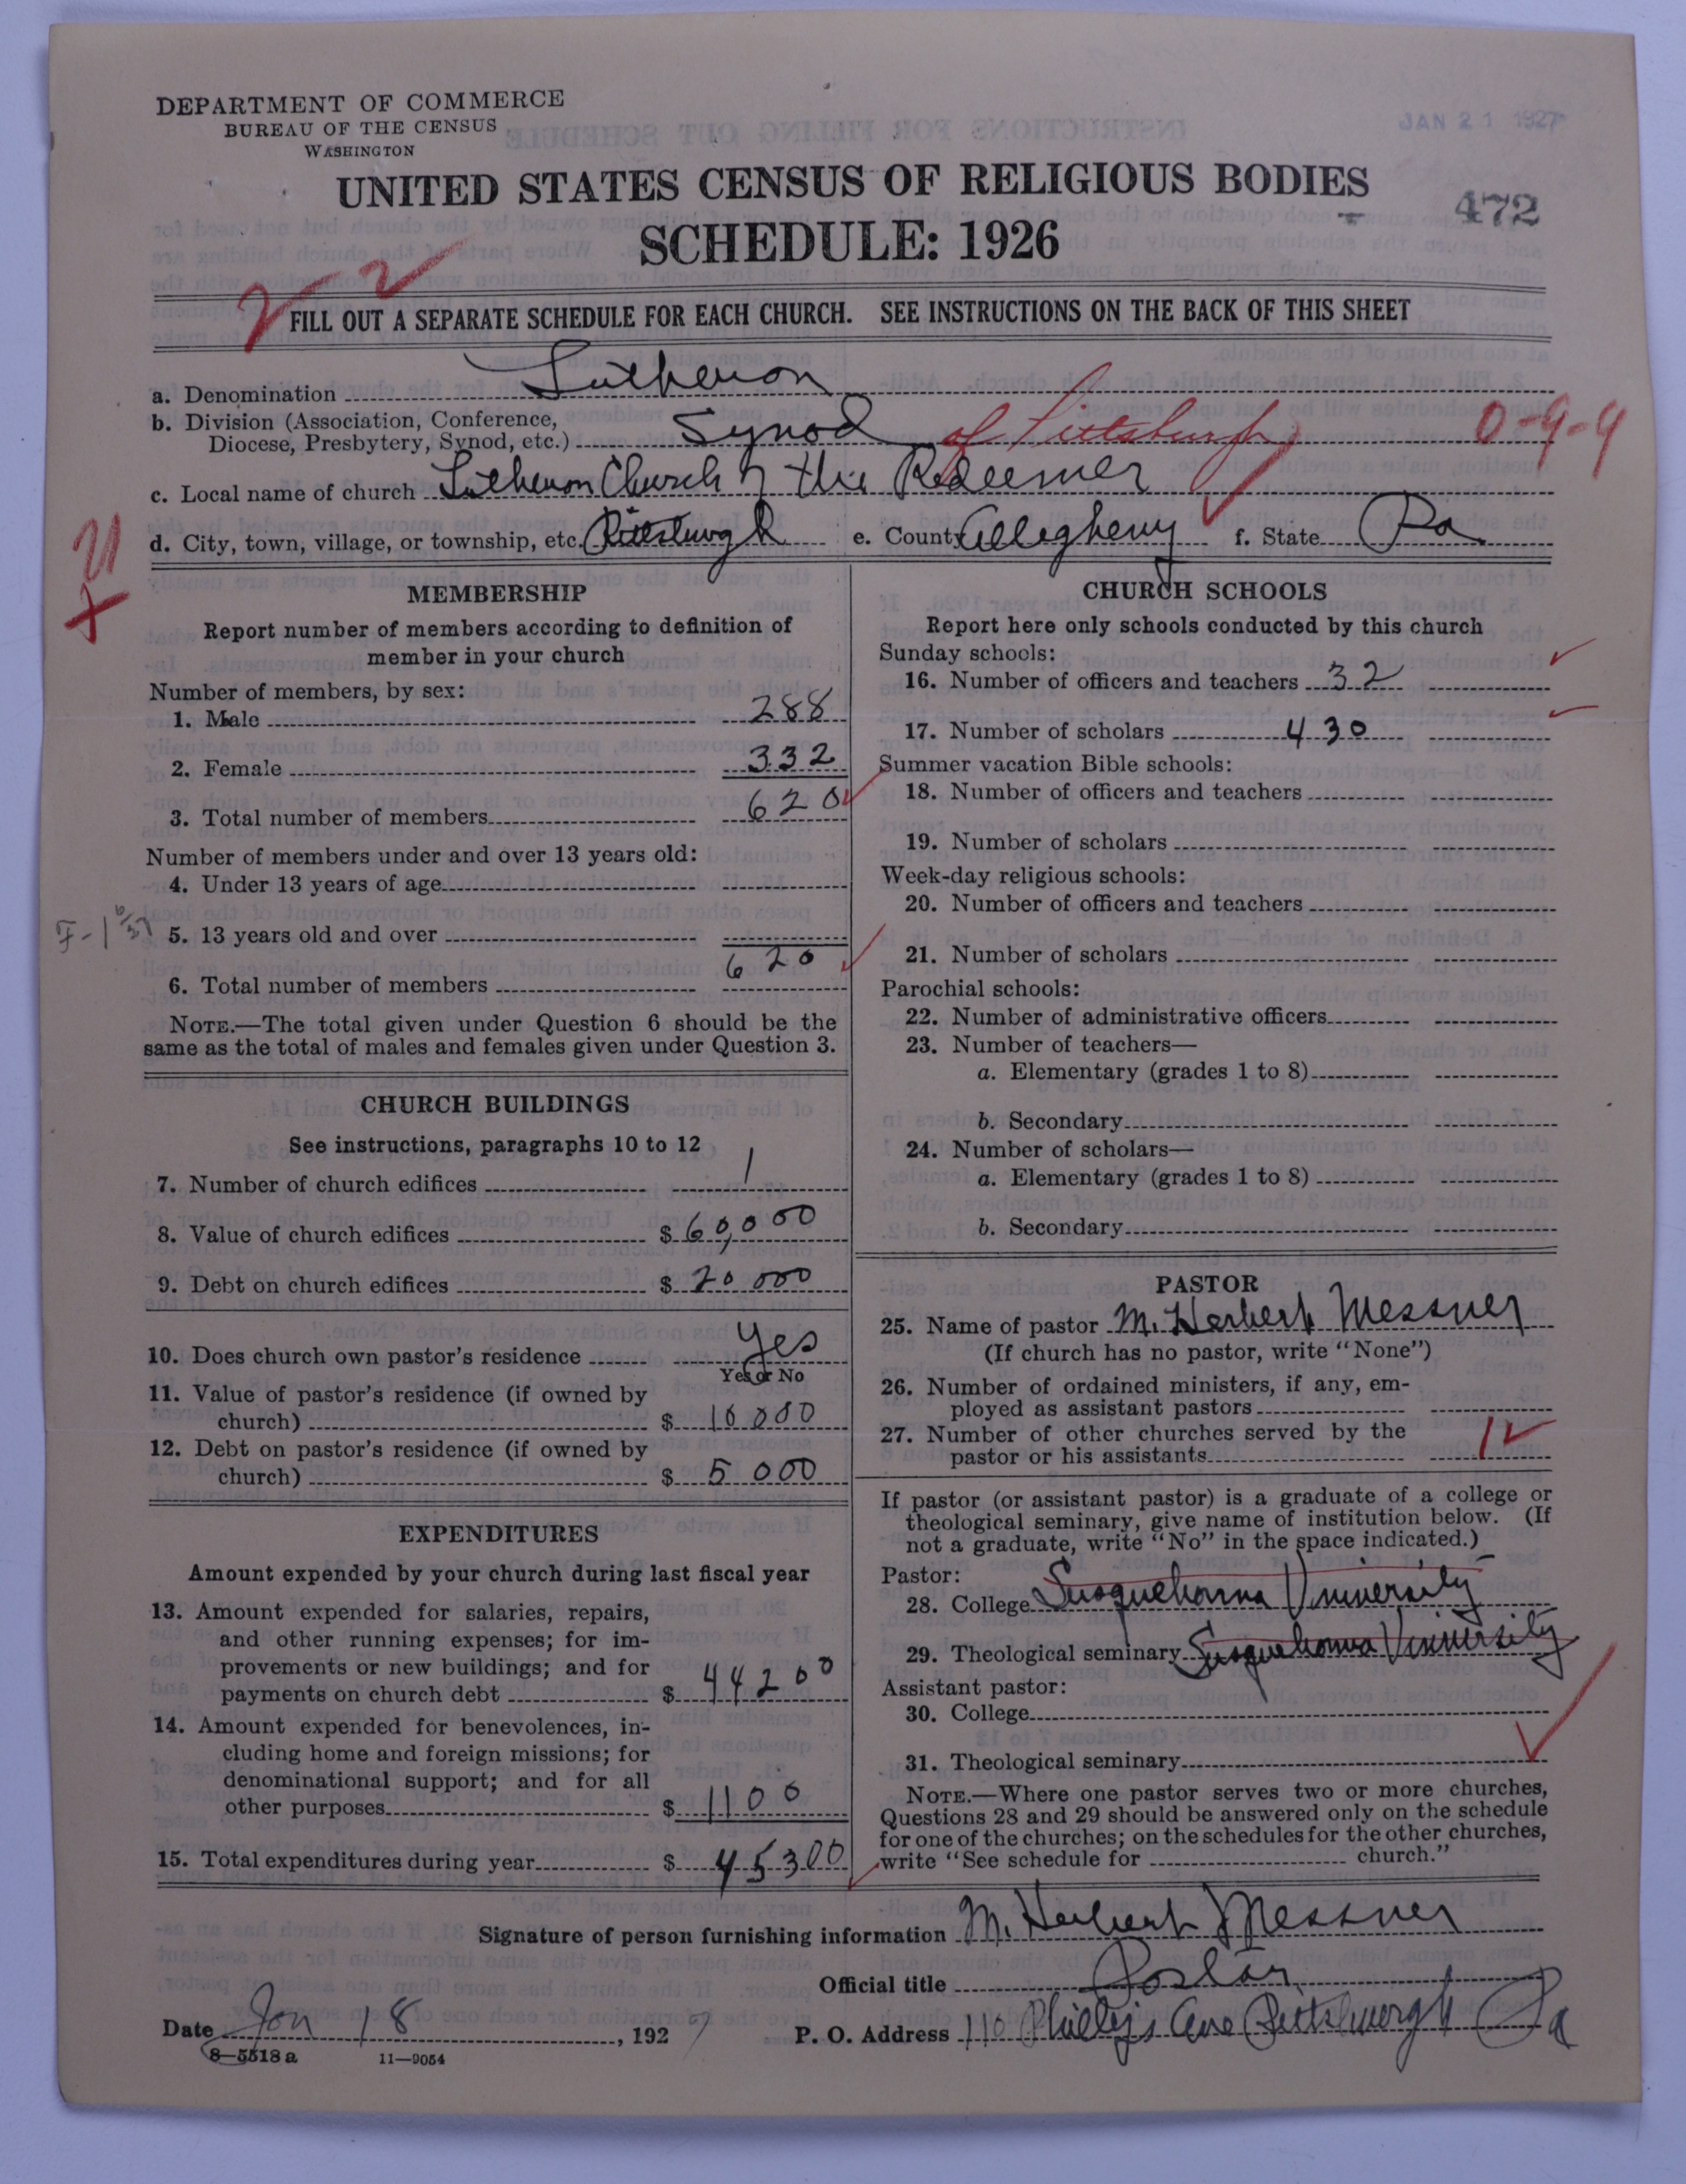 DEPARTMENT OF COMMERCE
BUREAU OF THE CENSUS
WASHINGTON
JAN 21 1927
UNITED STATES CENSUS OF RELIGIOUS BODIES
472
SCHEDULE: 1926
2 2
FILL OUT A SEPARATE SCHEDULE FOR EACH CHURCH. SEE INSTRUCTIONS ON THE BACK OF THIS SHEET
a. Denomination Lutheran
b. Division (Association, Conference,
Diocese, Presbytery, Synod, etc.) Synod of Pittsburgh 0-9-4
c. Local name of church Lutheran Church of the Redeemer
d. City, town, village, or township, etc. Pittsburgh e. County Allegheny f. State Pa
MEMBERSHIP
Report number of members according to definition of
member in your church
Number of members, by sex:
1. Male 288
2. Female 332
3. Total number of members 620
Number of members under and over 13 years old:
4. Under 13 years of age
5. 13 years old and over
6. Total number of members 620
NOTE.—The total given under Question 6 should be the
same as the total of males and females given under Question 3.
CHURCH BUILDINGS
See instructions, paragraphs 10 to 12
7. Number of church edifices 1
8. Value of church edifices $ 60,000
9. Debt on church edifices $ 20 000
10. Does church own pastor's residence Yes
Yes or No
11. Value of pastor's residence (if owned by
church) $ 10 000
12. Debt on pastor's residence (if owned by
church) $ 5 000
EXPENDITURES
Amount expended by your church during last fiscal year
13. Amount expended for salaries, repairs,
and other running expenses; for im-
provements or new buildings; and for
payments on church debt $ 44200
14. Amount expended for benevolences, in-
cluding home and foreign missions; for
denominational support; and for all
other purposes $ 1100
15. Total expenditures during year $ 45300
CHURCH SCHOOLS
Report here only schools conducted by this church
Sunday schools:
16. Number of officers and teachers 32
17. Number of scholars 430
Summer vacation Bible schools:
18. Number of officers and teachers
19. Number of scholars
Week-day religious schools:
20. Number of officers and teachers
21. Number of scholars
Parochial schools:
22. Number of administrative officers
23. Number of teachers—
a. Elementary (grades 1 to 8)
b. Secondary
24. Number of scholars—
a. Elementary (grades 1 to 8)
b. Secondary
PASTOR
25. Name of pastor M. Herbert Messner
(If church has no pastor, write "None")
26. Number of ordained ministers, if any, em-
ployed as assistant pastors
27. Number of other churches served by the
pastor or his assistants 1
If pastor (or assistant pastor) is a graduate of a college or
theological seminary, give name of institution below. (If
not a graduate, write "No" in the space indicated.)
Pastor:
28. College Susquehanna University
29. Theological seminary Susquehanna University
Assistant pastor:
30. College
31. Theological seminary
NOTE.—Where one pastor serves two or more churches,
Questions 28 and 29 should be answered only on the schedule
for one of the churches; on the schedules for the other churches,
write "See schedule for church."
Signature of person furnishing information M. Herbert Messner
Official title Pastor
Date Jan 18, 1927 P. O. Address 110 Phillips Ave Pittsburgh Pa
8-5518a 11-9054